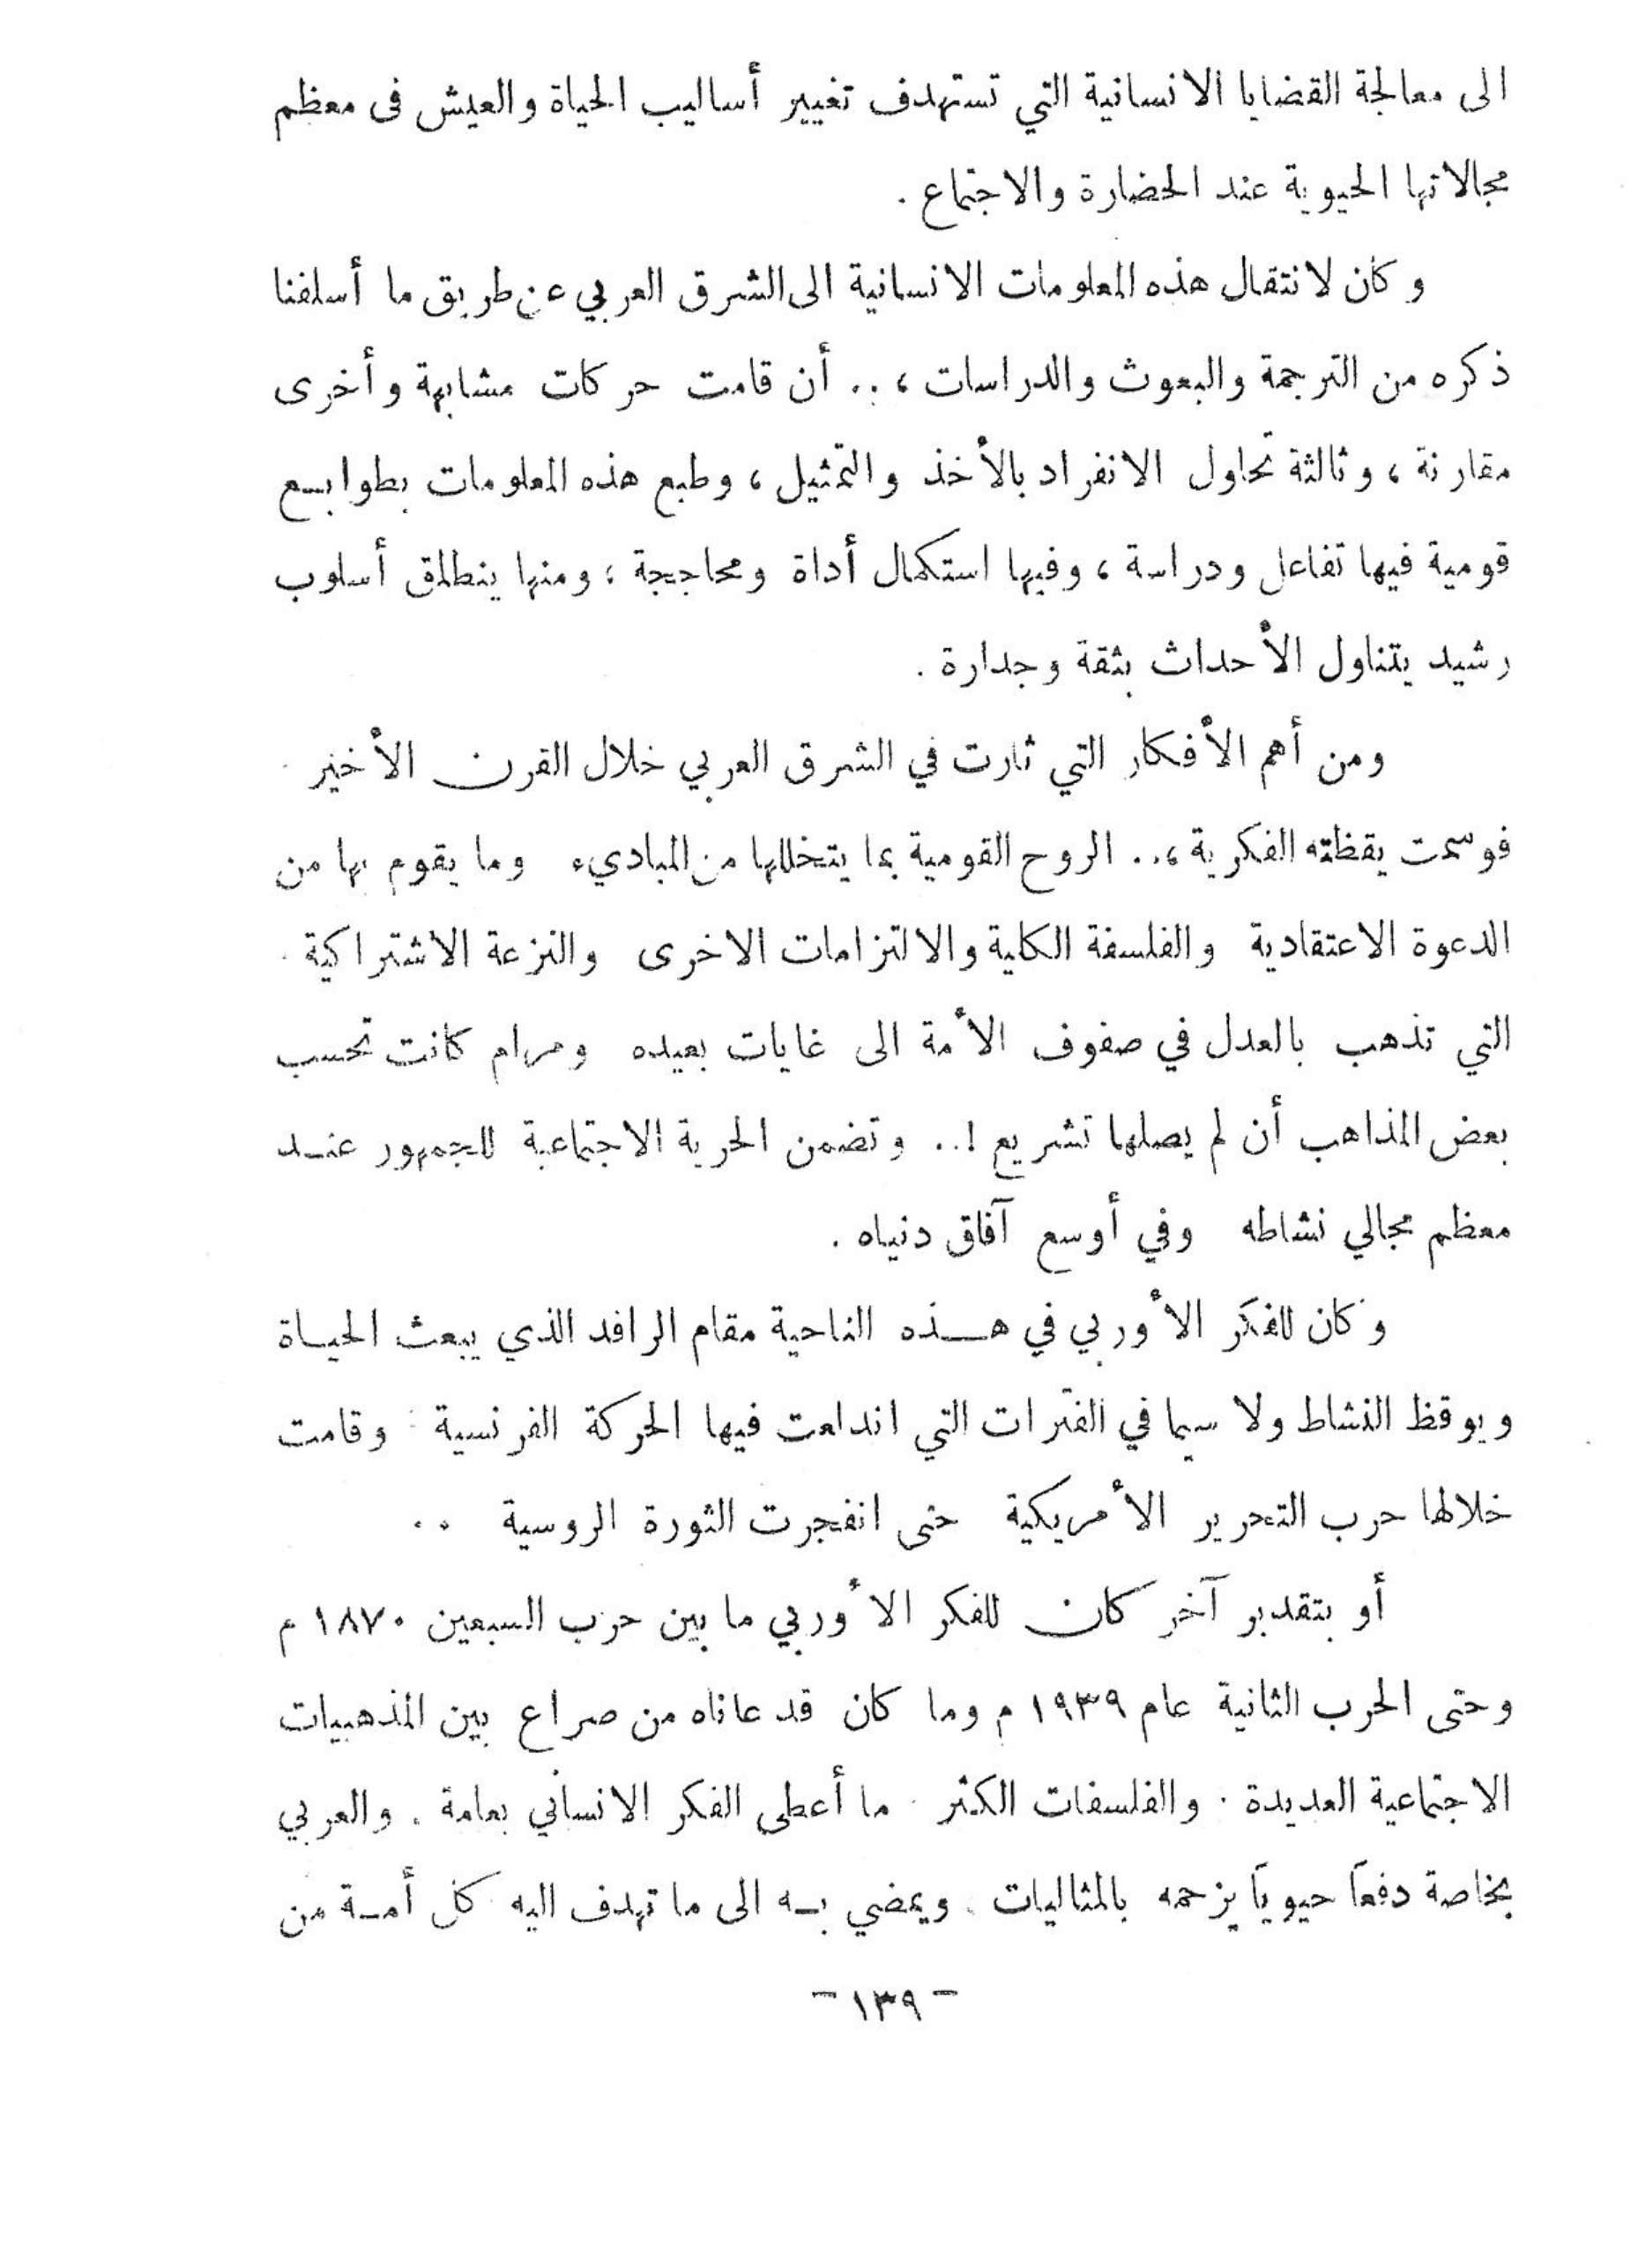 الى معالجة القضايا الانسانية التي تستهدف تغيير أساليب الحياة والعيش فى معظم
مجالاتها الحيوية عند الحضارة والاجتماع .
وكان لانتقال هذه المعلومات الانسانية الى الشرق العربي عن طريق ما أسلفنا
ذكره من الترجمة والبعوث والدراسات ، .. أن قامت حركات مشابهة وأخرى
مقارنة ، وثالثة تحاول الانفراد بالأخذ والتمثيل ، وطبع هذه المعلومات بطوابع
قومية فيها تفاعل ودراسة ، وفيها استكمال أداة ومحاججة ؛ ومنها ينطلق أسلوب
رشيد يتناول الأحداث بثقة وجدارة .
ومن أهم الأفكار التي ثارت في الشرق العربي خلال القرن الأخير
فوسمت يقظته الفكرية ، .. الروح القومية بما يتخللها من المباديء وما يقوم بها من
الدعوة الاعتقادية والفلسفة الكلية والالتزامات الاخرى والنزعة الاشتراكية .
التي تذهب بالعدل في صفوف الأمة الى غايات بعيده ومرام كانت تحسب
بعض المذاهب أن لم يصلها تشريع ! .. وتضمن الحرية الاجتماعية للجمهور عند
معظم مجالي نشاطه وفي أوسع آفاق دنياه .
وكان للفكر الأوربي في هذه الناحية مقام الرافد الذي يبعث الحياة
ويوقظ النشاط ولا سيما في الفترات التي اندلعت فيها الحركة الفرنسية وقامت
خلالها حرب التحرير الأمريكية حتى انفجرت الثورة الروسية ..
أو بتقدير آخر كان للفكر الأوربي ما بين حرب السبعين ١٨٧٠ م
وحتى الحرب الثانية عام ١٩٣٩ م وما كان قد عاناه من صراع بين المذهبيات
الاجتماعية العديدة . والفلسفات الكثر . ما أعطى الفكر الانساني بعامة . والعربي
بخاصة دفعاً حيوياً يزحمه بالمثاليات . ويمضي به الى ما تهدف اليه كل أمة من
- ١٣٩ -